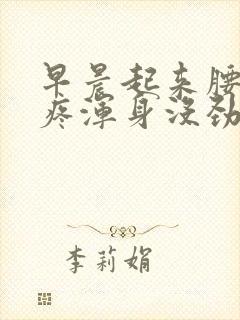 早晨起来腰
疼浑身没劲
李莉娟